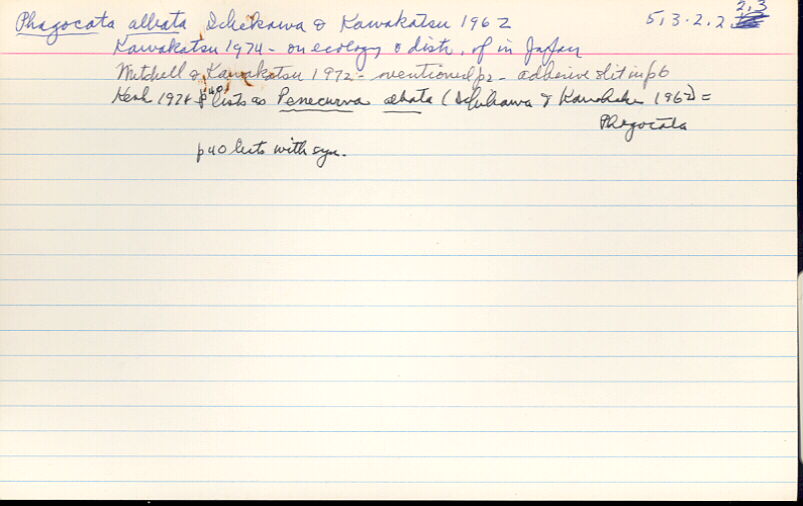 Phagocata albata Ichikawa & Kawakatsu 1962 5,3.2.2 2,3
Kawakatsu 1974 - on ecology & distr. of in Japan
Mitchell & Kawakatsu 1972 - mentioned p2 - adhesive slit in p6
1974 p40 lists as Penecurva albata (Ichikawa & Kawakatsu 1962) =
Phagocata
p40 lists with syn.